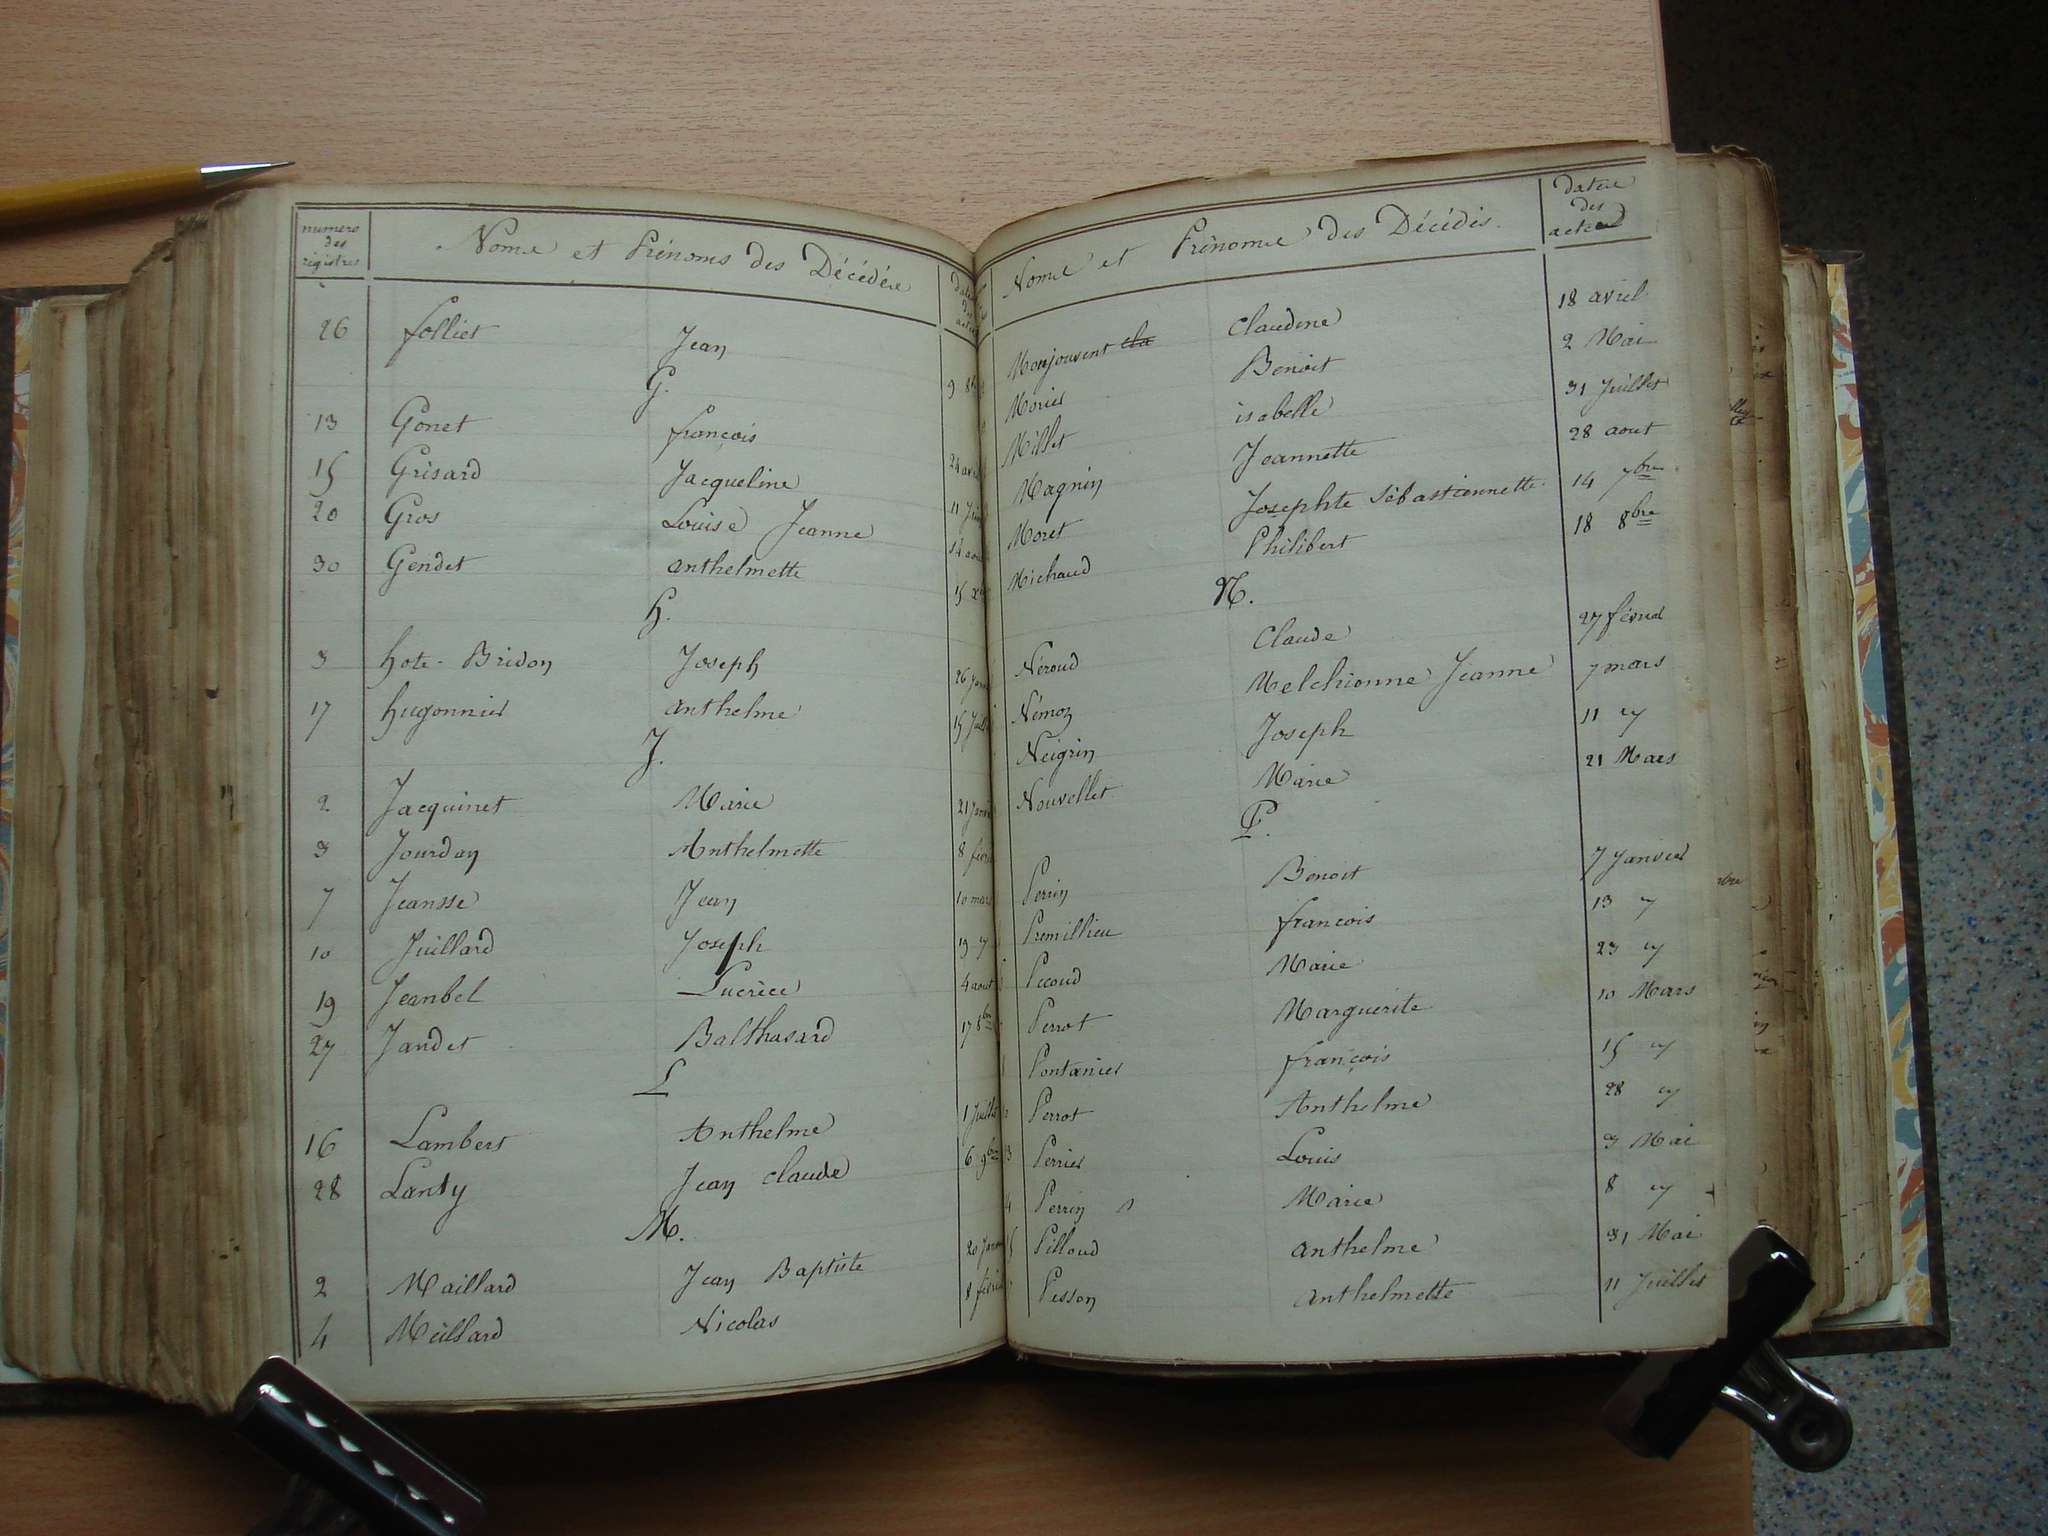 numero des régistres Noms et Prénoms des Décédés
26 folliet Jean 9 8
G.
13 Gonet françois 24 avril
15 Grisard Jacqueline 11
20 Gros Louise Jeanne 14 aout
30 Gendet anthelmette 15
H.
3 hote-Bridon Joseph 26
17 hugonnier anthelme 15
J.
2 Jacquinet Marie 21
3 Jourdan Anthelmette 8
7 Jeansse Jean 10 mars
10 Juillard Joseph 19 "
19 Jeanbel Lucrèce 4 aout
27 Jandet Balthasard 17 8bre
L
16 Lambert Anthelme 1 Juillet
28 Lanty Jean claude 6 9bre
M.
2 Maillard Jean Baptiste 20
4 Meillard Nicolas 8
Noms et Prénoms des Décédés. dates des actes
Monjouvent cla Claudine 18 avril
Morier Benoit 2 Mai
Millet isabelle 31 Juillet
Magnin Jeannette 28 aout
Moret Josephte Sébastiennette 14 7bre
Michaud Philibert 18 8bre
N.
Néroud Claude 27 février
Némoz Melchionne Jeanne 7 mars
Neigrin Joseph 11 "
Nouvellet Marie 21 Mars
P.
Perrin Benoit 7 Janvier
Premillieu françois 13 "
Picoud Marie 23 "
Perrot Marguerite 10 Mars
Pontanier françois 15 "
Perrot Anthelme 28 "
Perrier Louis 3 Mai
Perrin Marie 8 "
Pilloud anthelme 31 Mai
Pesson anthelmette 11 Juillet